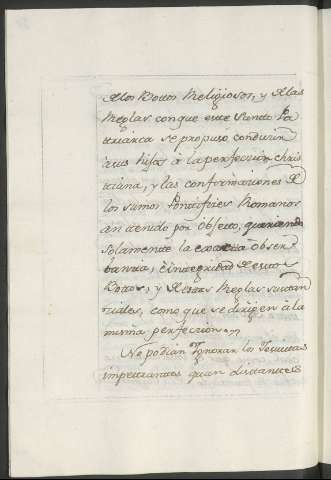 de los Votos Religiosos, y de las
Reglas con que este Santo Pa
triarca se propuso conducir
a sus hijos a la perfeccion chris
tiana, y las confirmaciones de
los sumos Pontifices Romanos
an tenido por objeto, queriendo
solamente la exacta obser
bancia, è integridad de estos
Votos, y de estas Reglas sustan
ciales, como que se dirigen à la
misma perfeccion.
No podian Ygnorar los Jesuitas
impetrantes quan distantes